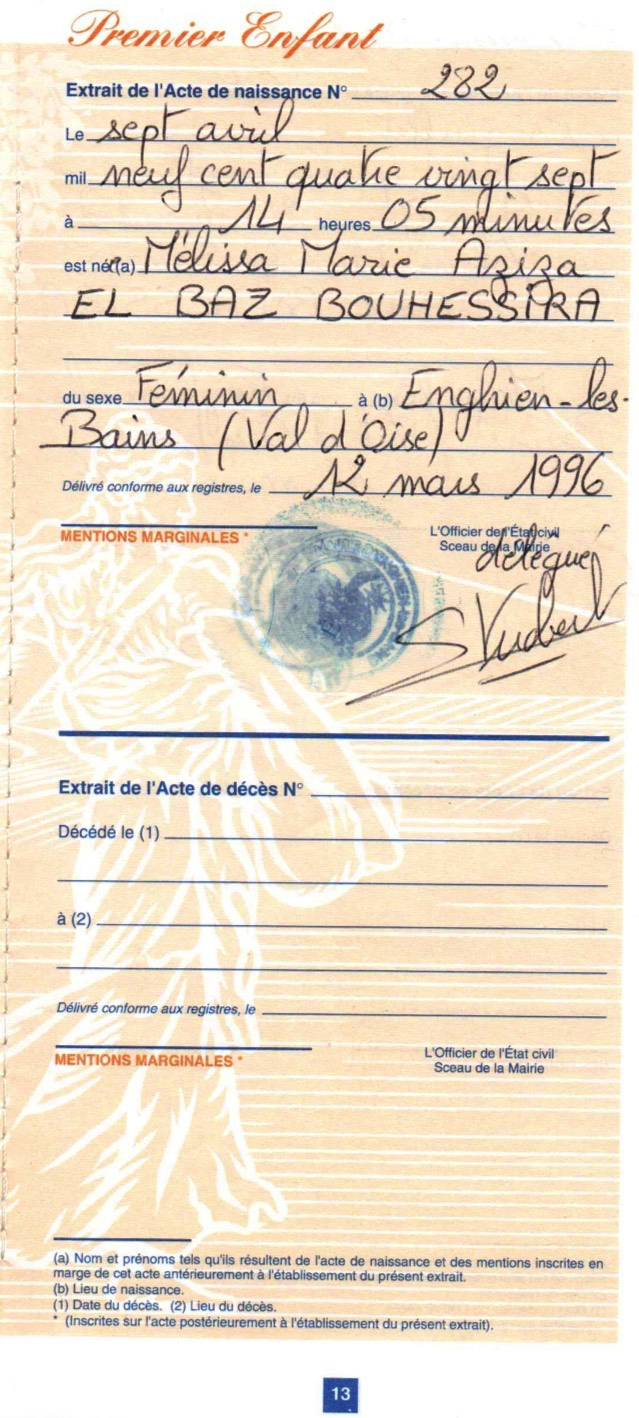 Premier Enfant
Extrait de l'Acte de naissance N° 282
Le sept avril
mil neuf cent quatre vingt sept
à 14 heures 05 minutes
est né(a) Mélissa Marie Aziza
EL BAZ BOUHESSIRA
du sexe Féminin à (b) Enghien-les-
Bains (Val d'Oise)
Délivré conforme aux registres, le 12 mars 1996
MENTIONS MARGINALES *
L'Officier de l'État civil
Sceau de la Mairie
délégué
Extrait de l'Acte de décès N°
Décédé le (1)
à (2)
Délivré conforme aux registres, le
MENTIONS MARGINALES *
L'Officier de l'État civil
Sceau de la Mairie
(a) Nom et prénoms tels qu'ils résultent de l'acte de naissance et des mentions inscrites en
marge de cet acte antérieurement à l'établissement du présent extrait.
(b) Lieu de naissance.
(1) Date du décès. (2) Lieu du décès.
* (Inscrites sur l'acte postérieurement à l'établissement du présent extrait).
13